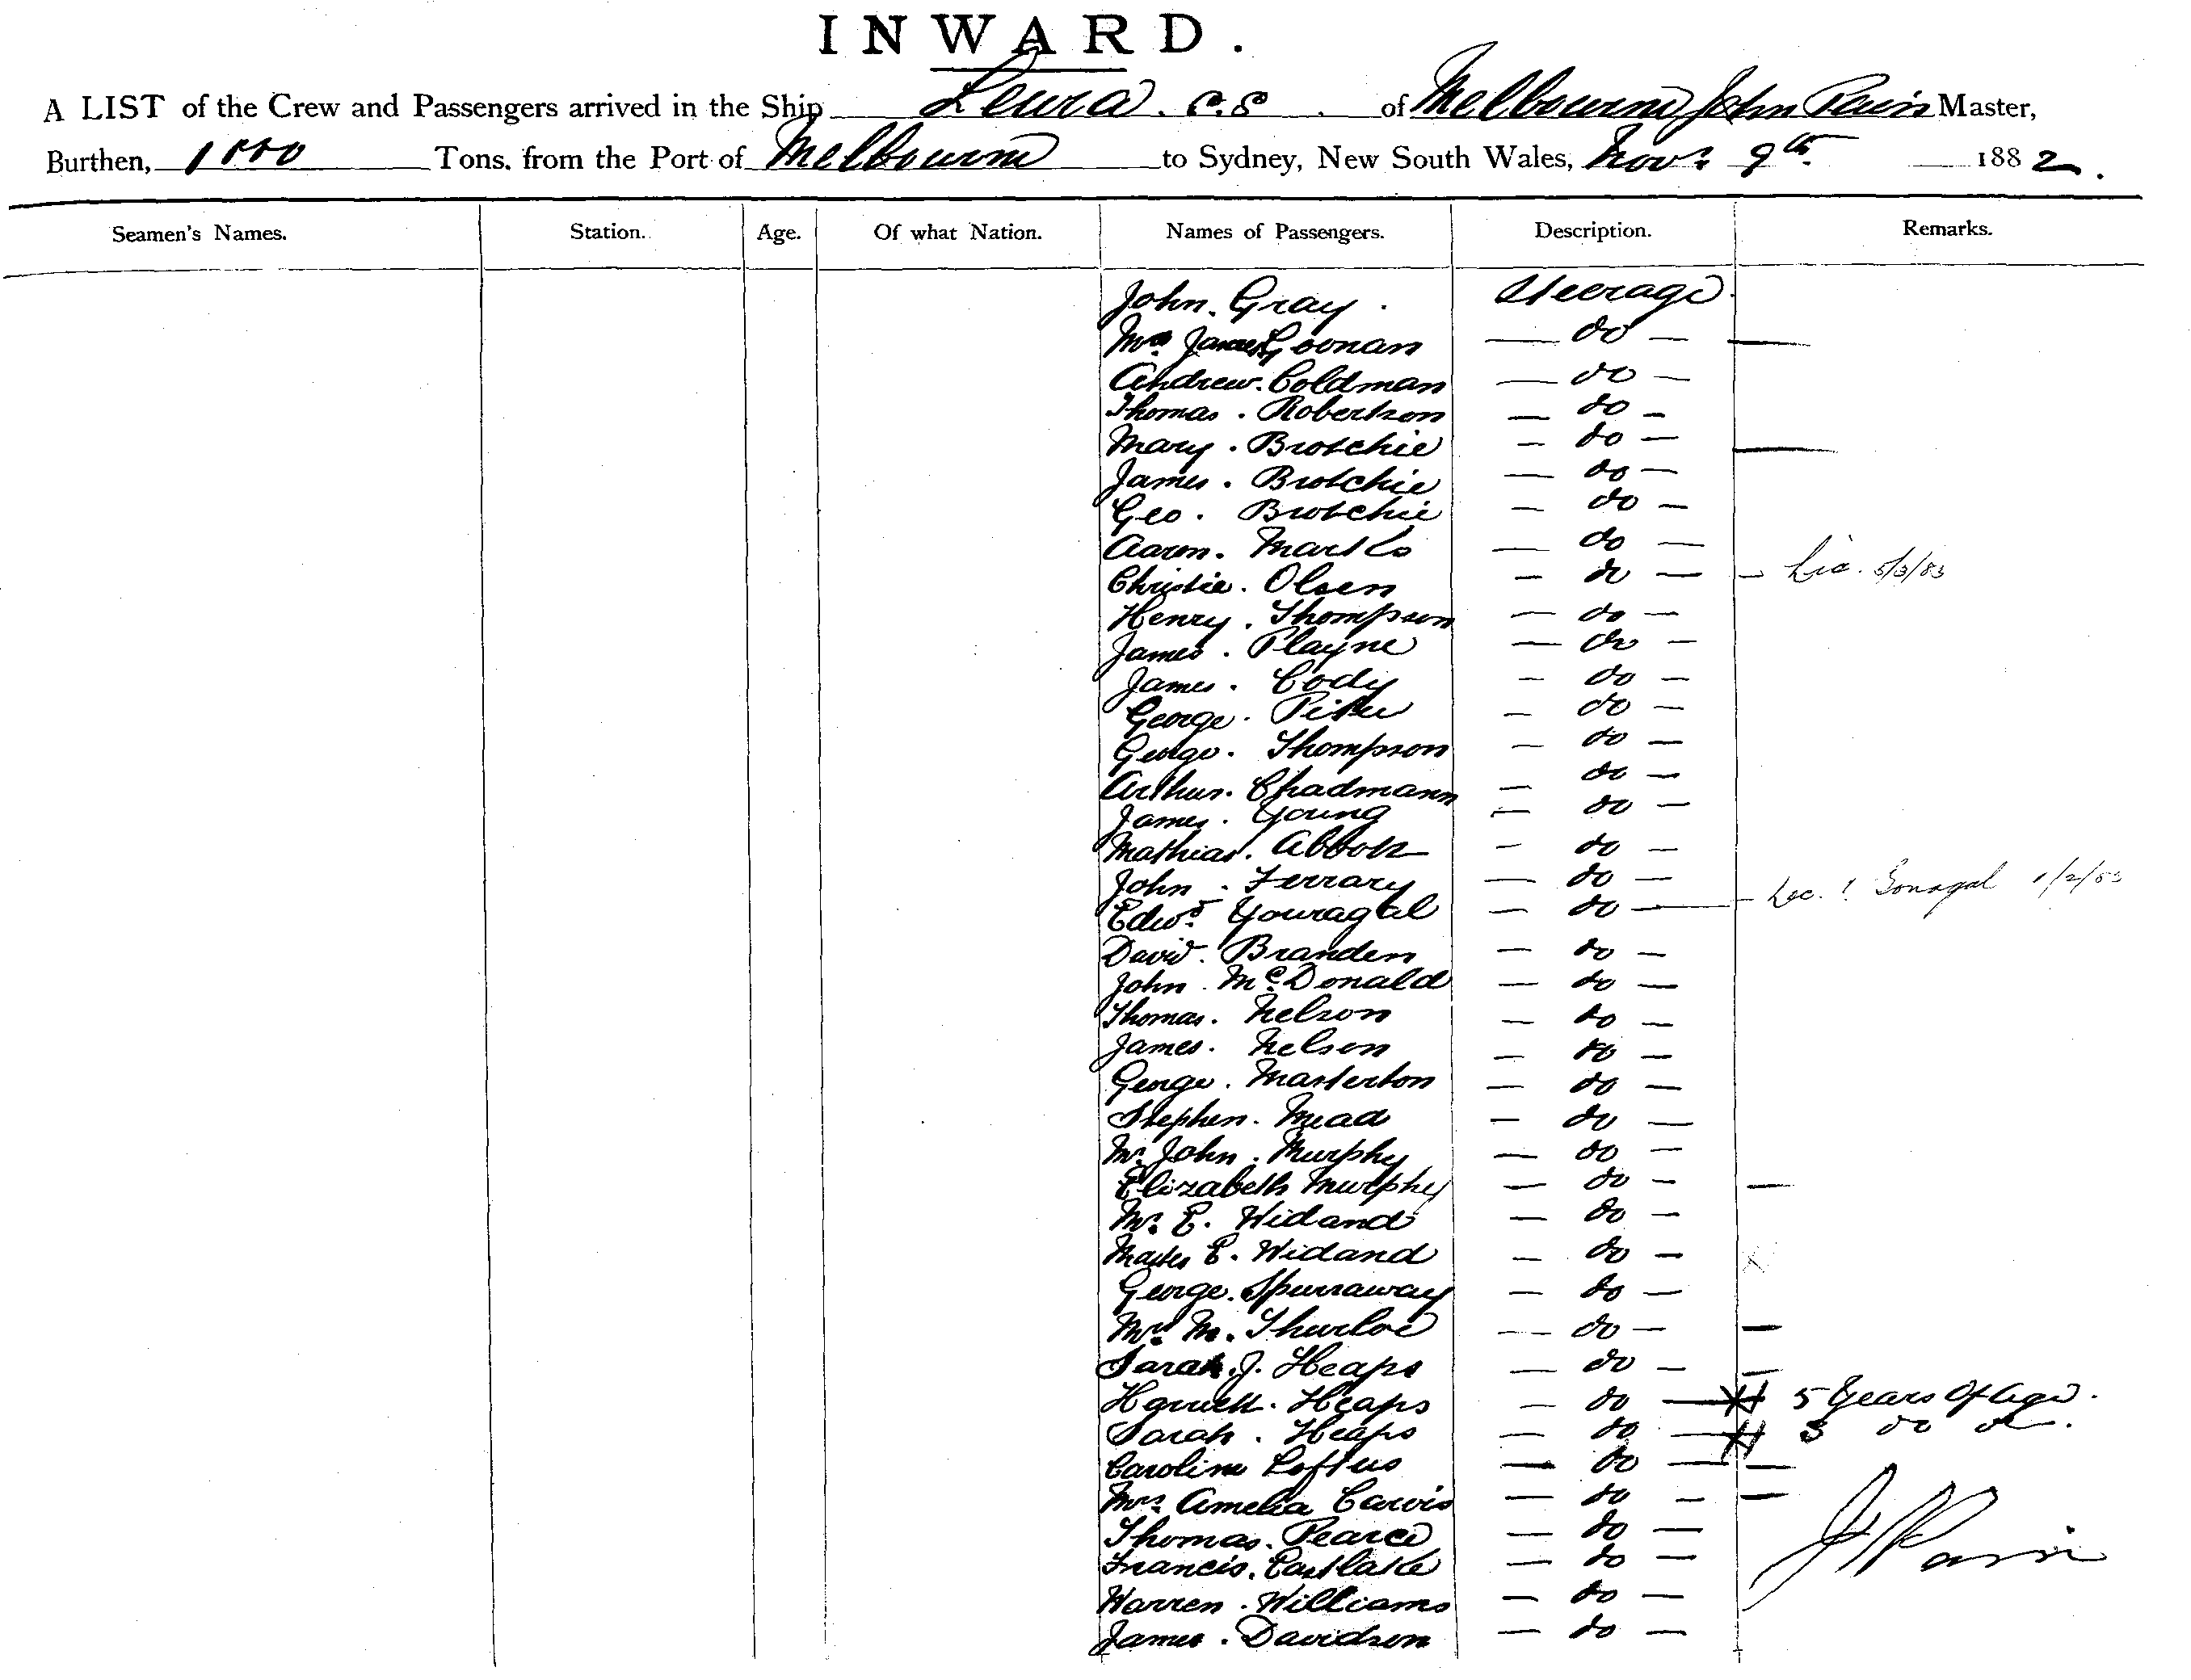 INWARD.
A LIST of the Crew and Passengers arrived in the Ship Leura. S.S. of Melbourne John Pain Master,
Burthen, 1000 Tons. from the Port of Melbourne to Sydney, New South Wales, Novr. 9th 1882.
Seamen's Names. Station. Age. Of what Nation. Names of Passengers. Description. Remarks.
John. Gray. Steerage.
Mrs James Goonan — do —
Andrew. Coldman — do —
Thomas. Robertson — do —
Mary. Brotchie — do —
James. Brotchie — do —
Geo. Brotchie — do —
Aaron. Marks — do —
Christie. Olsen — do — Lic. 5/3/83
Henry. Thompson — do —
James. Playne — do —
James. Cody — do —
George. — do —
George. Thompson — do —
Arthur. Chadmann — do —
James. Young — do —
Mathias. Abbott — do —
John. Ferrary — do —
Edwd. Youragal — do — Lic. ! Gonagal 1/2/83
David. Branden — do —
John. McDonald — do —
Thomas. Nelson — do —
James. Nelson — do —
George. Masterton — do —
Stephen. Mead — do —
Mr. John. Murphy — do —
Elizabeth Murphy — do —
Mr. E. Widand — do —
Master E. Widand — do —
George. Spurraway — do —
Mrs. M. Thurloe — do —
Sarah. J. Heaps — do —
Harriett. Heaps — do — 5 Years of age.
Sarah. Heaps — do — 3 do do.
Caroline Loftus — do —
Mrs. Amelia Carvis — do —
Thomas. Pearce — do —
Francis. Eastlake — do —
Warren. Williams — do —
James. Davidson — do —
J Pain